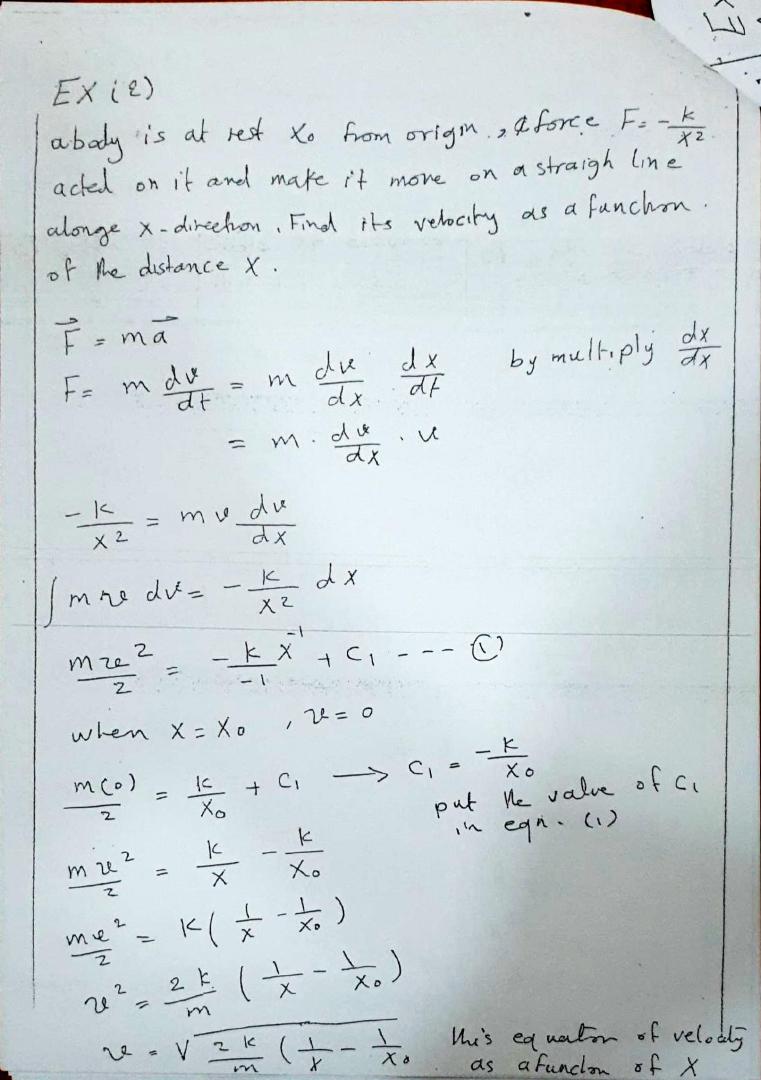 EX (2)
a body is at rest X₀ from origin, & force F = - k/x²
acted on it and make it move on a straigh line
alonge x-direction. Find its velocity as a function.
of the distance X.
F⃗ = ma⃗
F = m dv/dt = m dv/dx . dx/dt by multiply dx/dx
= m . dv/dx . v
-k/x² = m v dv/dx
∫ m v dv = - k/x² dx
mv²/2 = -k x⁻¹/-1 + C₁ --- ①
when x = x₀ , v = 0
m(0)/2 = k/x₀ + C₁ → C₁ = -k/x₀
put the value of C₁
in eqn. (1)
mv²/2 = k/x - k/x₀
mv²/2 = k(1/x - 1/x₀)
v² = 2k/m (1/x - 1/x₀)
v = √2k/m (1/x - 1/x₀ this equation of velocity
as a function of X